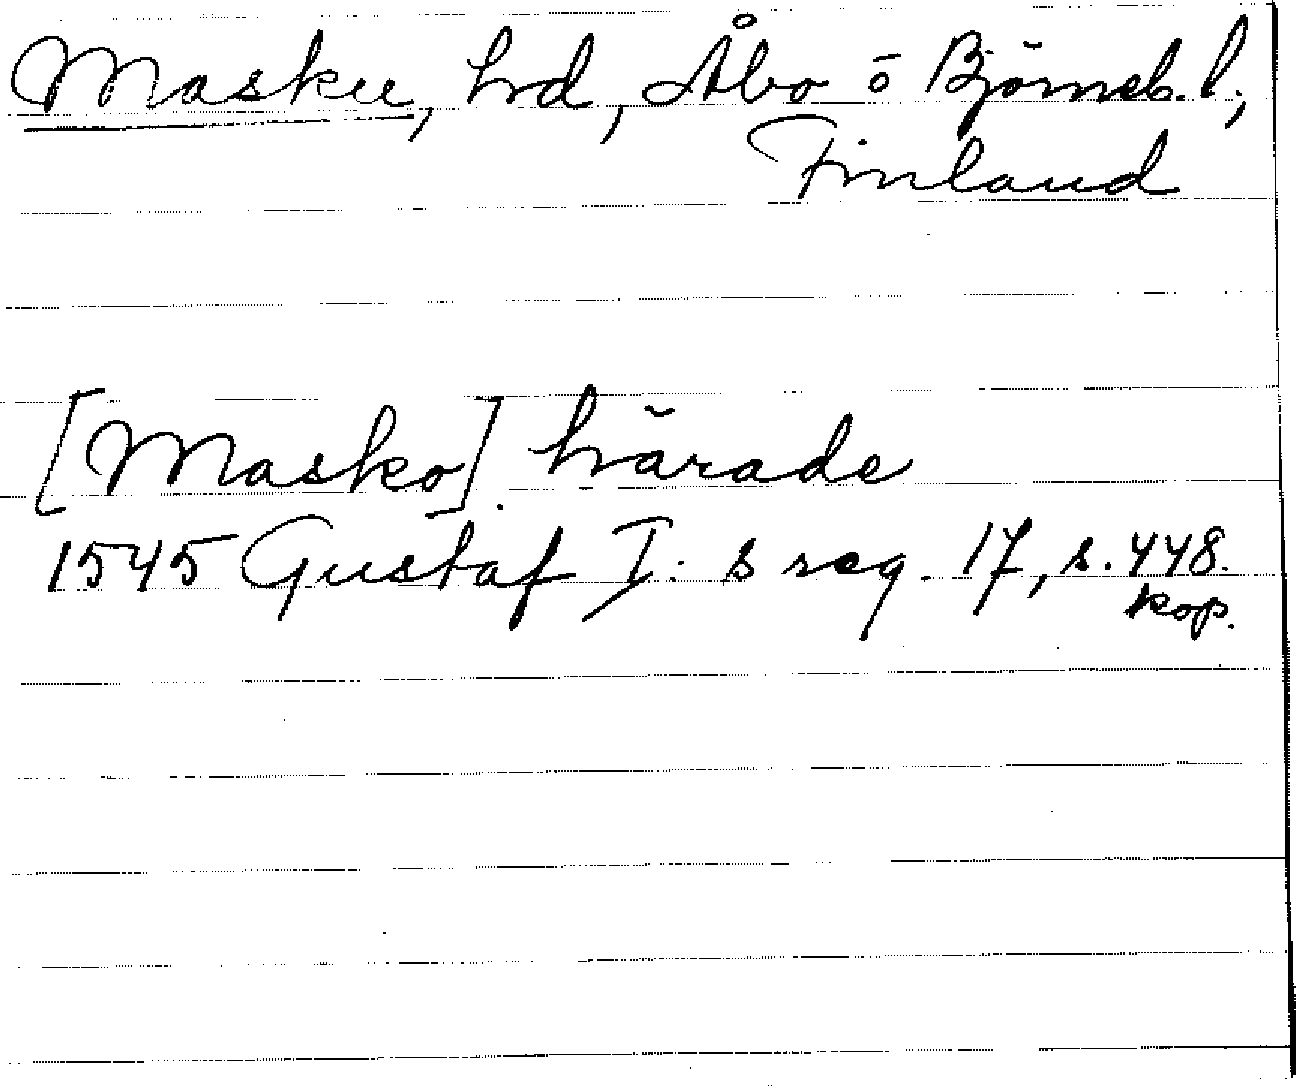 Masku, hd, Åbo o Björneb. l;
Finland
[Masko] härade
1545 Gustaf I: s reg. 17, s. 448.
kop.